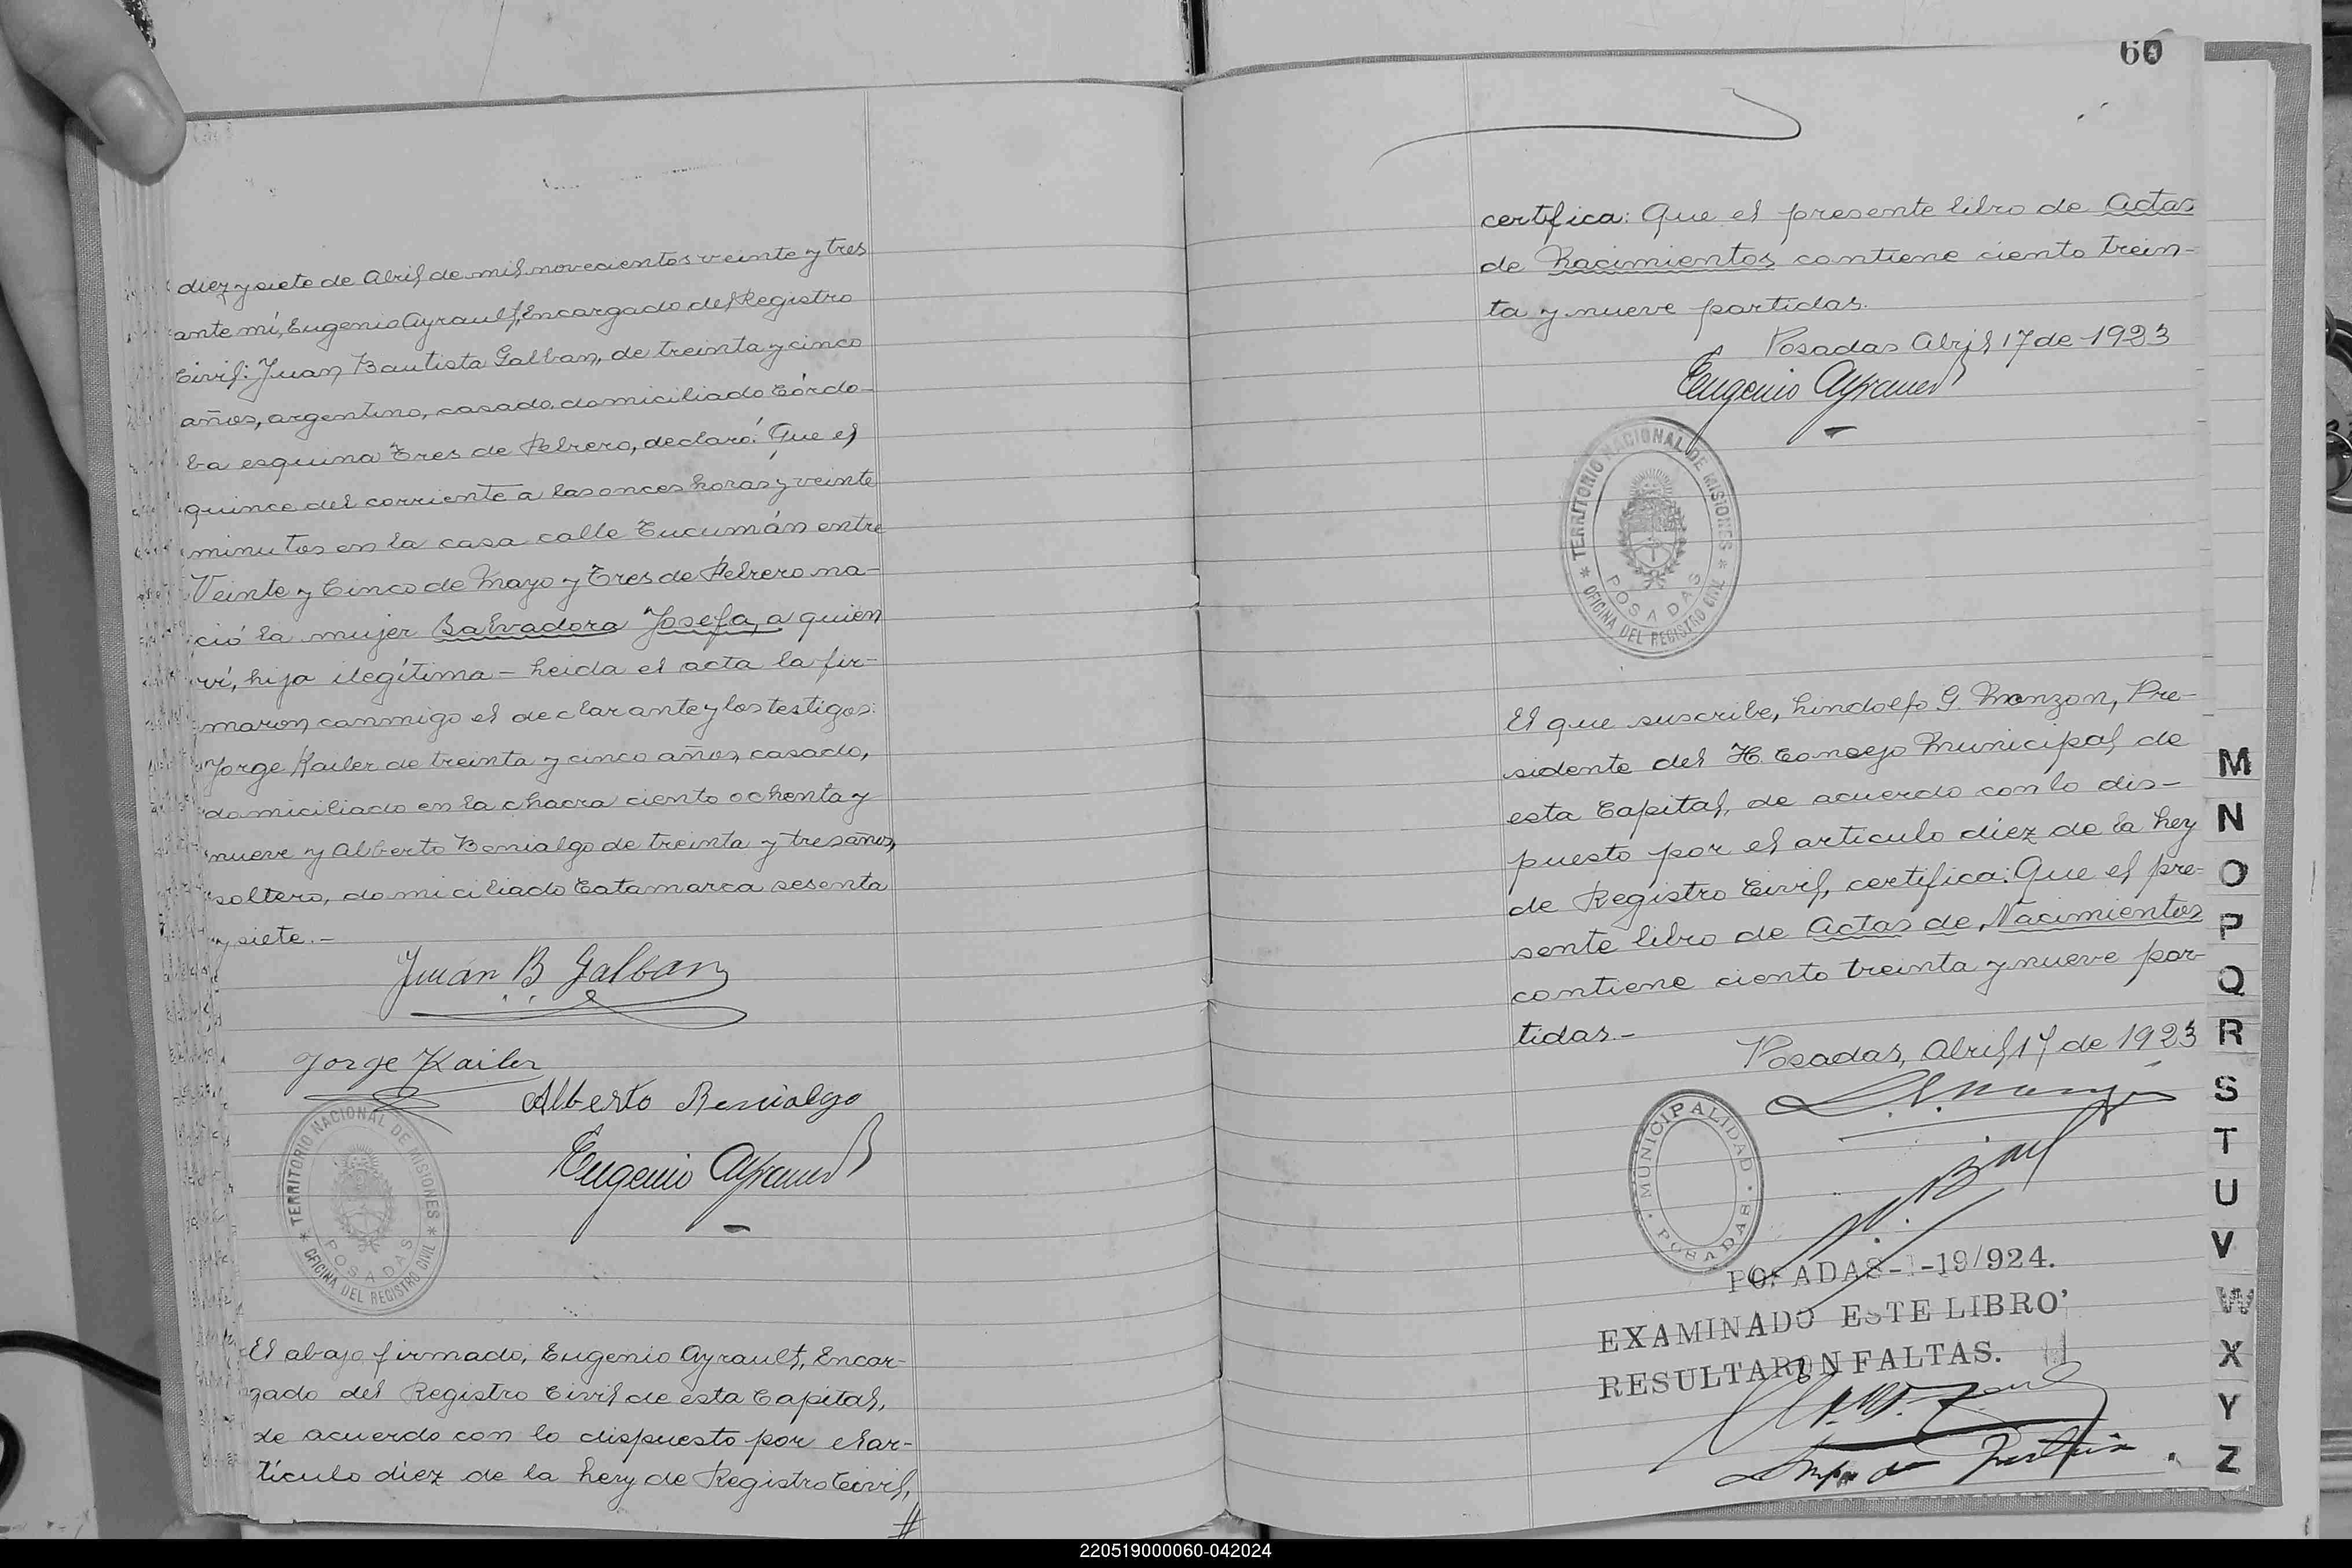 diez y siete de Abril de mil novecientos veinte y tres
ante mí, Eugenio Ayrault, Encargado del Registro
Civil: Juan Bautista Galban, de treinta y cinco
años, argentino, casado, domiciliado Córdo-
ba esquina Tres de Febrero, declaró: Que el
quince del corriente a las onces horas y veinte
minutos en la casa calle Tucumán entre
Veinte y Cinco de Mayo y Tres de Febrero na-
ció la mujer Salvadora Josefa, a quien
ví, hija ilegítima - Leida el acta la fir-
maron conmigo el declarante y los testigos:
Jorge Kailer de treinta y cinco años, casado,
domiciliado en la chacra ciento ochenta y
nueve y Alberto Benialgo de treinta y tres años,
soltero, domiciliado Catamarca sesenta
y siete.-
Juan B Galban
Jorge Kailer
Alberto Benialgo
Eugenio Ayrault
TERRITORIO NACIONAL DE MISIONES
POSADAS
* OFICINA DEL REGISTRO CIVIL *
El abajo firmado, Eugenio Ayrault, Encar-
gado del Registro Civil de esta Capital,
de acuerdo con lo dispuesto por el ar-
tículo diez de la Ley de Registro Civil,
//
60
certifica: Que el presente libro de Actas
de Nacimientos contiene ciento trein-
ta y nueve partidas.
Posadas Abril 17 de 1923
Eugenio Ayrault
TERRITORIO NACIONAL DE MISIONES
POSADAS
* OFICINA DEL REGISTRO CIVIL *
El que suscribe, Lindolfo G. Monzon, Pre-
sidente del H. Consejo Municipal de
esta Capital, de acuerdo con lo dis-
puesto por el articulo diez de la Ley
de Registro Civil, certifica: Que el pre-
sente libro de Actas de Nacimientos
contiene ciento treinta y nueve par-
tidas.-
Posadas, Abril 17 de 1923
MUNICIPALIDAD
POSADAS
POSADAS - -19/924.
EXAMINADO ESTE LIBRO
RESULTARON FALTAS.
M
N
O
P
Q
R
S
T
U
V
W
X
Y
Z
220519000060-042024